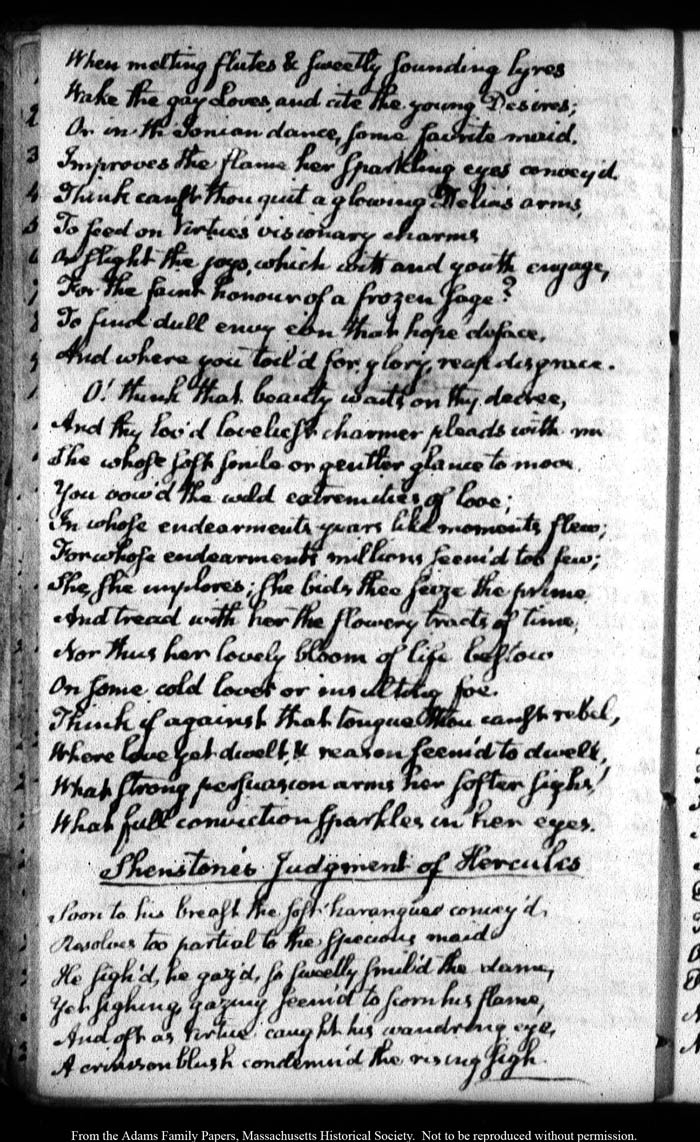 When melting flutes & sweetly sounding lyres
Wake the gay Loves, and cite the young Desires;
Or in th' Ionian dance, some favrite maid.
Improves the flame her sparkling eyes convey'd.
Think canst thou quit a glowing Delia's arms,
To feed on Virtue's visionary charms
Or slight the joys, which wit and youth engage,
For the faint honour of a frozen sage?
To find dull envy e'en that hope deface,
And where you toil'd for glory, reap disgrace.
O! think that beauty waits on thy decree,
And thy lov'd loveliest charmer pleads with me
She whose soft smile or gentler glance to move
You vow'd the wild extremities of love;
In whose endearments years like moments flew;
For whose endearments millions seem'd too few;
She, She implores; She bids thee seize the prime
And tread with her the flowery tracts of time,
Nor thus her lovely bloom of life bestow
On some cold lover or insulting foe.
Think if against that tongue thou canst rebel,
Where love yet dwelt, & reason seem'd to dwell,
What strong persuasion arms her softer sighs!
What full conviction sparkles in her eyes.
Shenstone's Judgment of Hercules
Soon to his breast the soft harangues convey'd,
Resolves too partial to the specious maid
He sigh'd, he gaz'd, so sweetly smil'd the dame,
Yet sighing, gazing seem'd to scorn his flame,
And oft as Virtue caught his wandring eye,
A crimson blush condemn'd the rising sigh
From the Adams Family Papers, Massachusetts Historical Society. Not to be reproduced without permission.